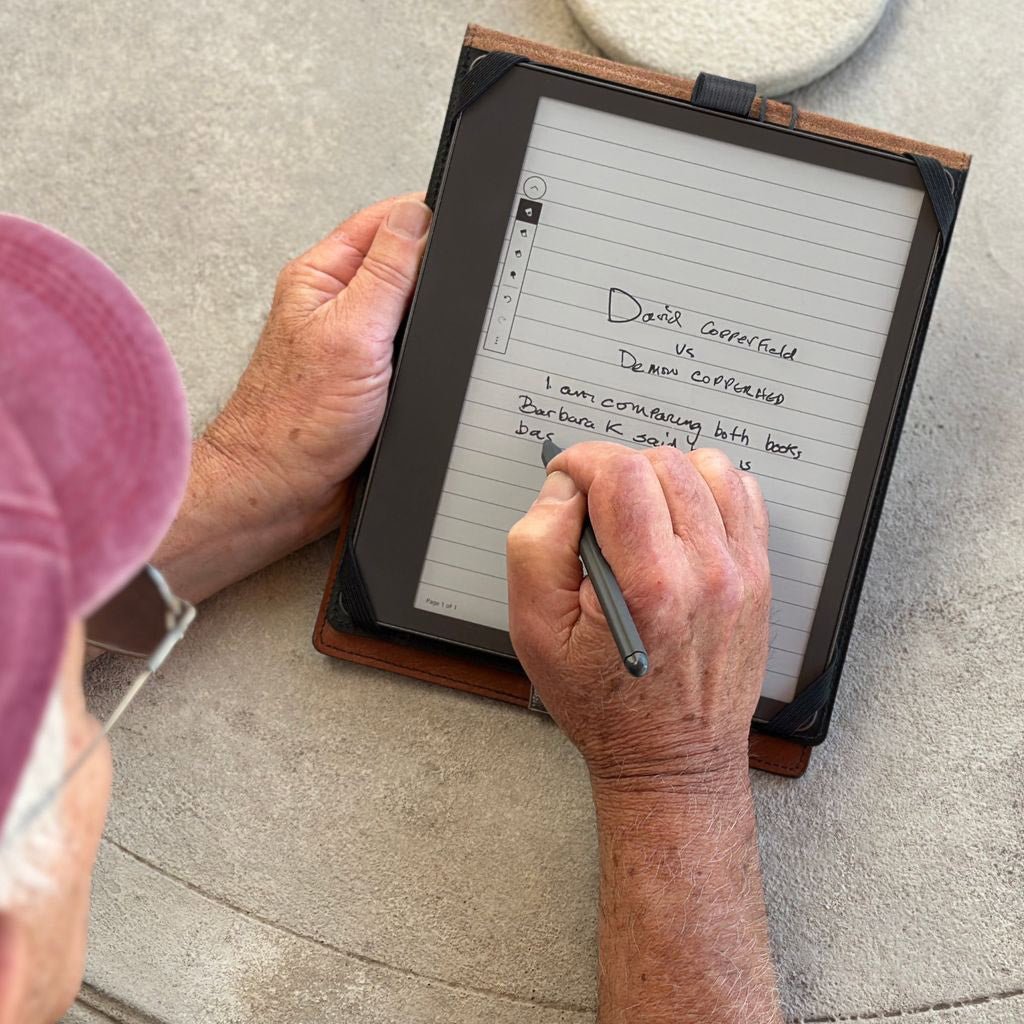 David Copperfield
vs
Demon Copperhed
I am comparing both books
Barbara K said
bas is
Page 1 of 1